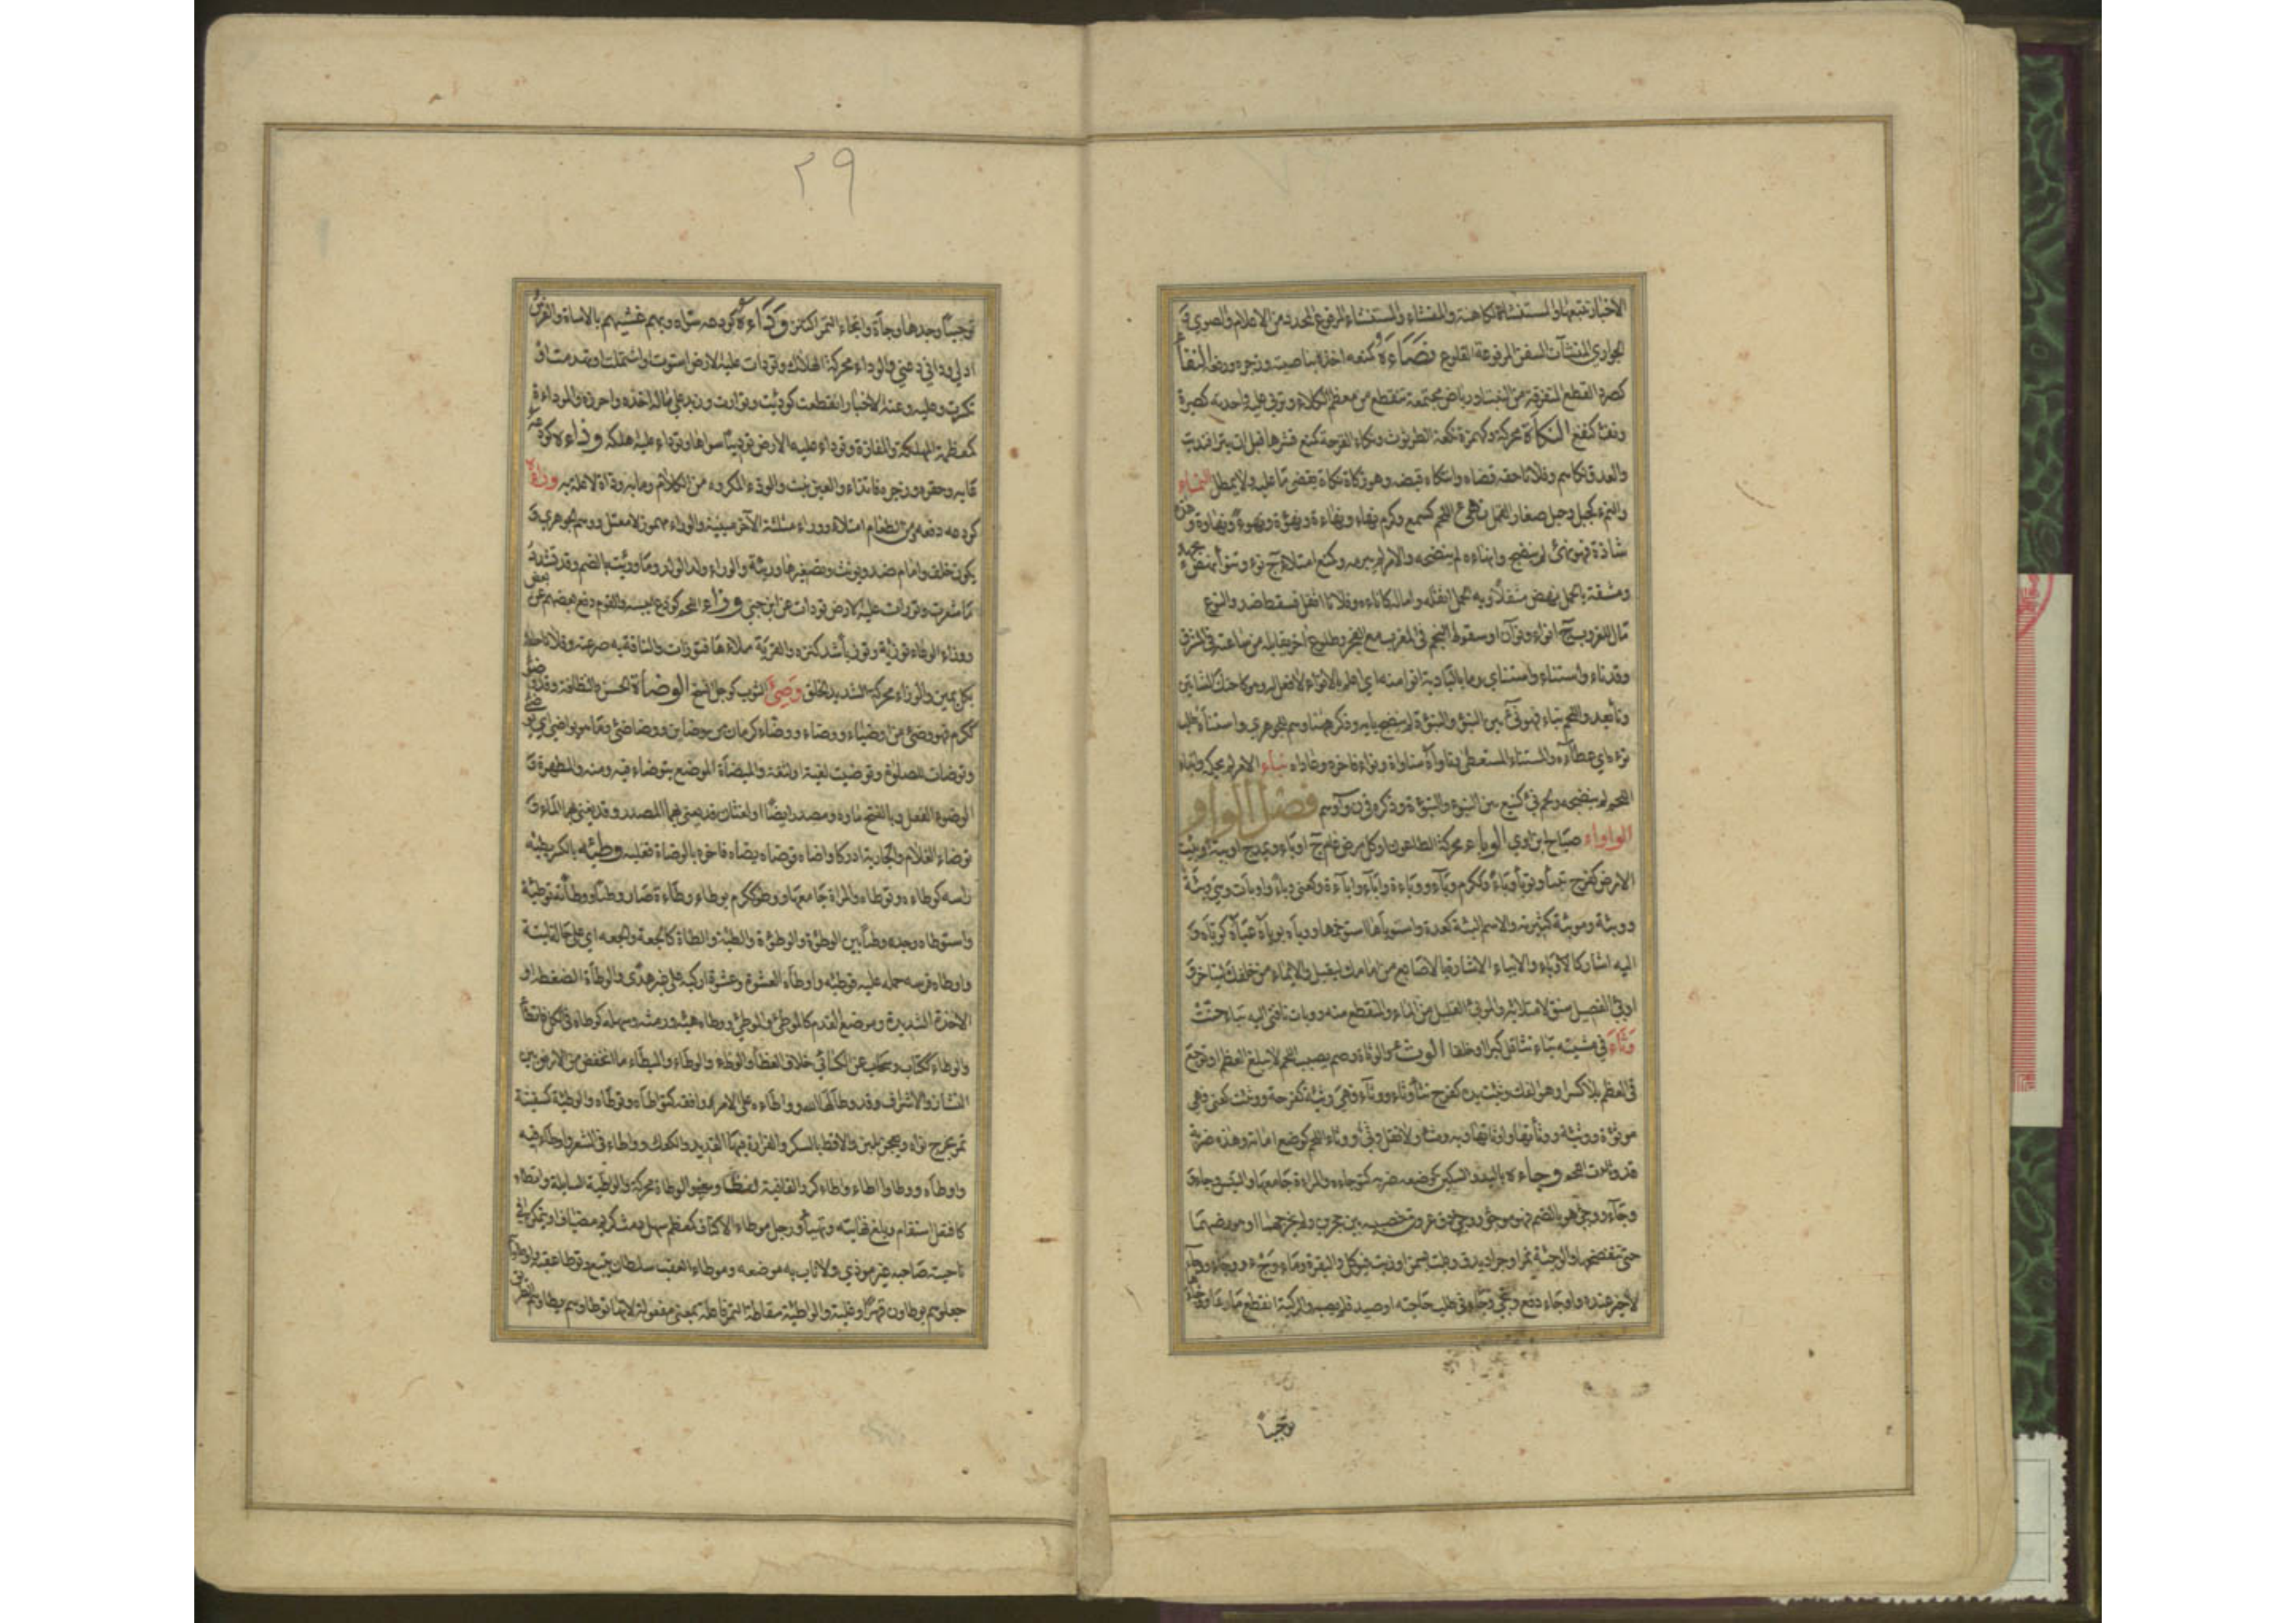 الأخبار تتبعها والمستنشأة الكاهنة والمنشأ والمستنشأ المرفوع المحدد من الاعلام والصوى و
الجواري المنشآت السفن المرفوعة القلوع نصاءه كمنعه اخذ بناصيته وزجره ورفعه النفأ
كصرد القطع المتفرقة من النبت او رياض مجتمعة تنقطع من معظم الكلاء وتربى عليه واحدته كصبرة
ونفء كمنع النكأة محركة وكهمزة نكعة الطرثوث ونكاء القرحة كمنع قشرها قبل ان تبرا فنديت
والعدو نكاهم وفلانا حقه قضاه وانتكاه قبضه وهو زكأة نكأة يقضي ما عليه ولا يمطل النماء
والنمء كجبل وحبل صغار القمل نهئ اللحم كسمع وكرم نهاء ونهاءة ونهؤة ونهوءا ونهاوة وهذه
شاذة فهو نهئ لم ينضج وانهاءه لم ينضجه والامر لم يبرمه وكمنع امتلا ج نوء وتنوأ نهض بجهد
ومشقة بالحمل نهض مثقلا وبه الحمل اثقله واماله كاناءه وفلانا اثقل فسقط ضد والنوء
مال للغروب ج انواء ونوآن او سقوط النجم في المغرب مع الفجر وطلوع آخر يقابله من ساعته في المشرق
وقد ناء واستناء واستناى وما بالبادية انوا منه اي اعلم بالانواء ولا فعل له وهو كاحنك الشاتين
ونأ بعد واللحم يناء فهو نئ بين النيوء والنيوءة لم ينضج يائية وذكرها هنا وهم للجوهري واستناه طلب
نوءه اي عطاءه والمستناء المستعطى وناواه مناواة ونواء فاخره وعاداه نيأ الامر لم يحكمه وانيأ
اللحم لم ينضجه ولحم نئ كنيع بين النيوء والنيوءة وذكره في ن و أ وهم فصل الواو
الوأواء صياح ابن آوى الوباء محركة الطاعون او كل مرض عام ج اوباء ويمد ج اوبية وبئت
الارض كفرح تيبأ وتوبأ وباء وككرم وباء ووباءة وإباء وإباءة وكعنى وبأ واوبأت وهي وبئة
ووبيئة وموبئة كثيرته والاسم البئة كعدة واستوبأها استوخمها ووبأه يوبأه عبأه كوبأه و
اليه اشار كاوبأ والايباء الاشارة بالاصابع من امامك ليقبل والايماء من خلفك ليتاخر و
اوبئ الفصيل سنق لامتلائه والموبئ القليل من الماء والمنقطع منه ووبأت ناقتي اليه تبأ حنت
وتأ في مشيته يتأ تثاقل كبرا او خلقا الوثء والوثاءة وصم يصيب اللحم لا يبلغ العظم او توجع
في العظم بلا كسر او هو الفك وثئت يده كفرح تثأ وثأ ووثأ فهي وثئة كفرحة ووثئت كعنى فهي
موثوءة ووثيئة ووثأتها واوثأتها وبه وثء ولا تقل وثي ووثأ اللحم كوضع اماته وهذه ضربة
قد وثأت اللحم وجأه باليد والسكين كوضعه ضربه كتوجاءه والمراة جامعها والتيس وجاءً و
وجاء ووجئ هو بالضم فهو موجوء ووجئ دق عروق خصييه بين حجرين ولم يخرجهما او هو رضهما
حتى تنفضخا والوجيئة تمر او جراد يدق ويلت بسمن او زيت فيوكل والبقرة وماء وجء ووجأ ووجاء
لا خير عنده واوجأ دفع ونحى وجاء في طلب حاجته او صيد فلم يصبه والركية انقطع ماوها ووجأها
توجيأ
٢٩
توجيئا وجدها وجأة واتجأ التمر اكتنز ودأه كودعه سواه وبهم غشيهم بالاساءة والفرس
ادلى ودأني دعني والودأ محركة الهلاك وتودات عليه الارض استوت واشتملت او تهدمت او
تكسرت وعليه وعنه الاخبار انقطعت كودئت وتوارت وزيد على ماله اخذه واحرزه والمودأة
كمعظمة المهلكة والمفازة وودأ عليه الارض توديئا سواها وتودأ عليه اهلكه وذأه كودعه
عابه وحقره وزجره فاتذأ والعين نبت والوذء المكروه من الكلام وما به وذأة لا علة به ورأه
كودعه دفعه ومن الطعام امتلا ووراء مثلثة الآخر مبنية والوراء مهموز لا معتل ووهم الجوهري و
يكون خلف وامام ضد ويونث وتصغيرها وريئة والوراء ولد الولد وما ورئت بالضم وقد تشدد
ما شعرت وتورأت عليه الارض تودأت عن ابن جني وزأ اللحم كودع ايبسه والقوم دفع بعضهم عن بعض
ووزأ الوعاء توزئة وتوزيئا شد كنزه والقربة ملأها فتوزأت والناقة به صرعته وفلانا حلفه
بكل يمين والوزأ محركة الشديد الخلق وصئ الثوب كوجل اتسخ الوضاءة الحسن والنظافة وقد وضؤ
ككرم فهو وضئ من اوضياء ووضاء ووضاء كرمان من وضائين ووضاضئ وتوضأت
وتوضأت للصلوة وتوضيت لغية او لثغة والميضأة الموضع يتوضأ فيه ومنه والمطهرة و
الوضوء الفعل وبالفتح ماوه ومصدر ايضا او لغتان قد يعنى بهما المصدر وقد يعنى بهما الماء و
توضأ الغلام والجارية ادركا وواضأه فوضأه يضأه فاخره بالوضاءة فغلبه وطئه بالكسر يطؤه
داسه كوطأه وتوطأه والمراة جامعها ووطؤ ككرم يوطؤ وطاءة صار وطيئا ووطأته توطئة
واستوطأه وجده وطيئا بين الوطاءة والوطوءة والطئة والطأة كالجعة والجعة اي على حالة لينة
واوطأه فرسه حمله عليه فوطئه واوطأه العشوة وعشوة اركبه على غير هدى والوطأة الضغطة او
الاخذة الشديدة وموضع القدم كالموطأ والموطئ ووطأه هيأه ودمثه وسهله كوطأه في الكل فاتطأ
والوطاء ككتاب وسحاب عن الكسائي خلاف الغطاء والوطء والوطاء والميطاء ما انخفض من الارض بين
النشاز والاشراف وقد وطأها الله وواطأه على الامر وافقه كتواطأه وتوطأه والوطيئة كسفينة
تمر يخرج نواه ويعجن بلبن والاقط بالسكر والغرارة فيها القديد والكعك وواطأ في الشعر واوطأ فيه
واوطأه ووطأ واطأ وآطأ كرر القافية لفظا ومعنى والوطأة محركة والواطئة السابلة واستطأ
كافتعل استقام وبلغ نهايته وتهيأ ورجل موطأ الاكناف كمعظم سهل دمث كريم مضياف او يتمكن في
ناحيته صاحبه غير موذي ولا ناب به موضعه وموطأ العقب سلطان يتبع وتوطأ عقبه واوطأوه
جعلوهم يوطأون قهرا وغلبة والواطئة سقاطة التمر فاعلة بمعنى مفعولة لانها توطأ وهم يطأوهم